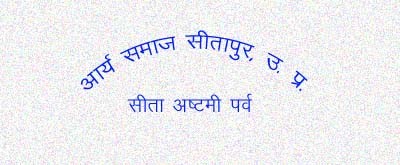 आर्य समाज सीतापुर, उ. प्र.
सीता अष्टमी पर्व